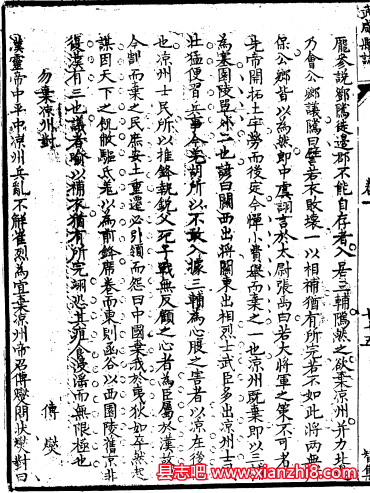 龐參說鄧騭徙邊郡不能自存者入居三輔騭然之欲棄涼州并力北
乃會公卿議騭曰譬若衣敗壞一以相補猶有所完若不如此將兩無
保公卿皆以為然郎中虞詡言於太尉張禹曰若大將軍之策不可者
先帝開拓土宇勞而後定今憚小費舉而棄之一也涼州既棄即以三輔
為塞園陵單外二也諺曰關西出將關東出相烈士武臣多出涼州士風
壯猛便習兵事今羌胡所以不敢入據三輔為心腹之害者以涼在後
也涼州士民所以推鋒執銳父死子戰無反顧之心者為臣屬於漢
今割而棄之民庶安土重遷必引領而怨曰中國棄我於夷狄如卒然起
謀因天下之饑敝驅氐羌以為前鋒席卷而東則函谷以西園陵舊京非
復漢有三也議者喻以補衣猶有所完詡恐其疽食浸淫而無限極也
勿棄涼州對
傅燮
漢靈帝中平中涼州兵亂不解崔烈為宜棄涼州帝召傅燮問狀燮對曰
县志吧www.xianzhi8.com
县志吧www.xianzhi8.com